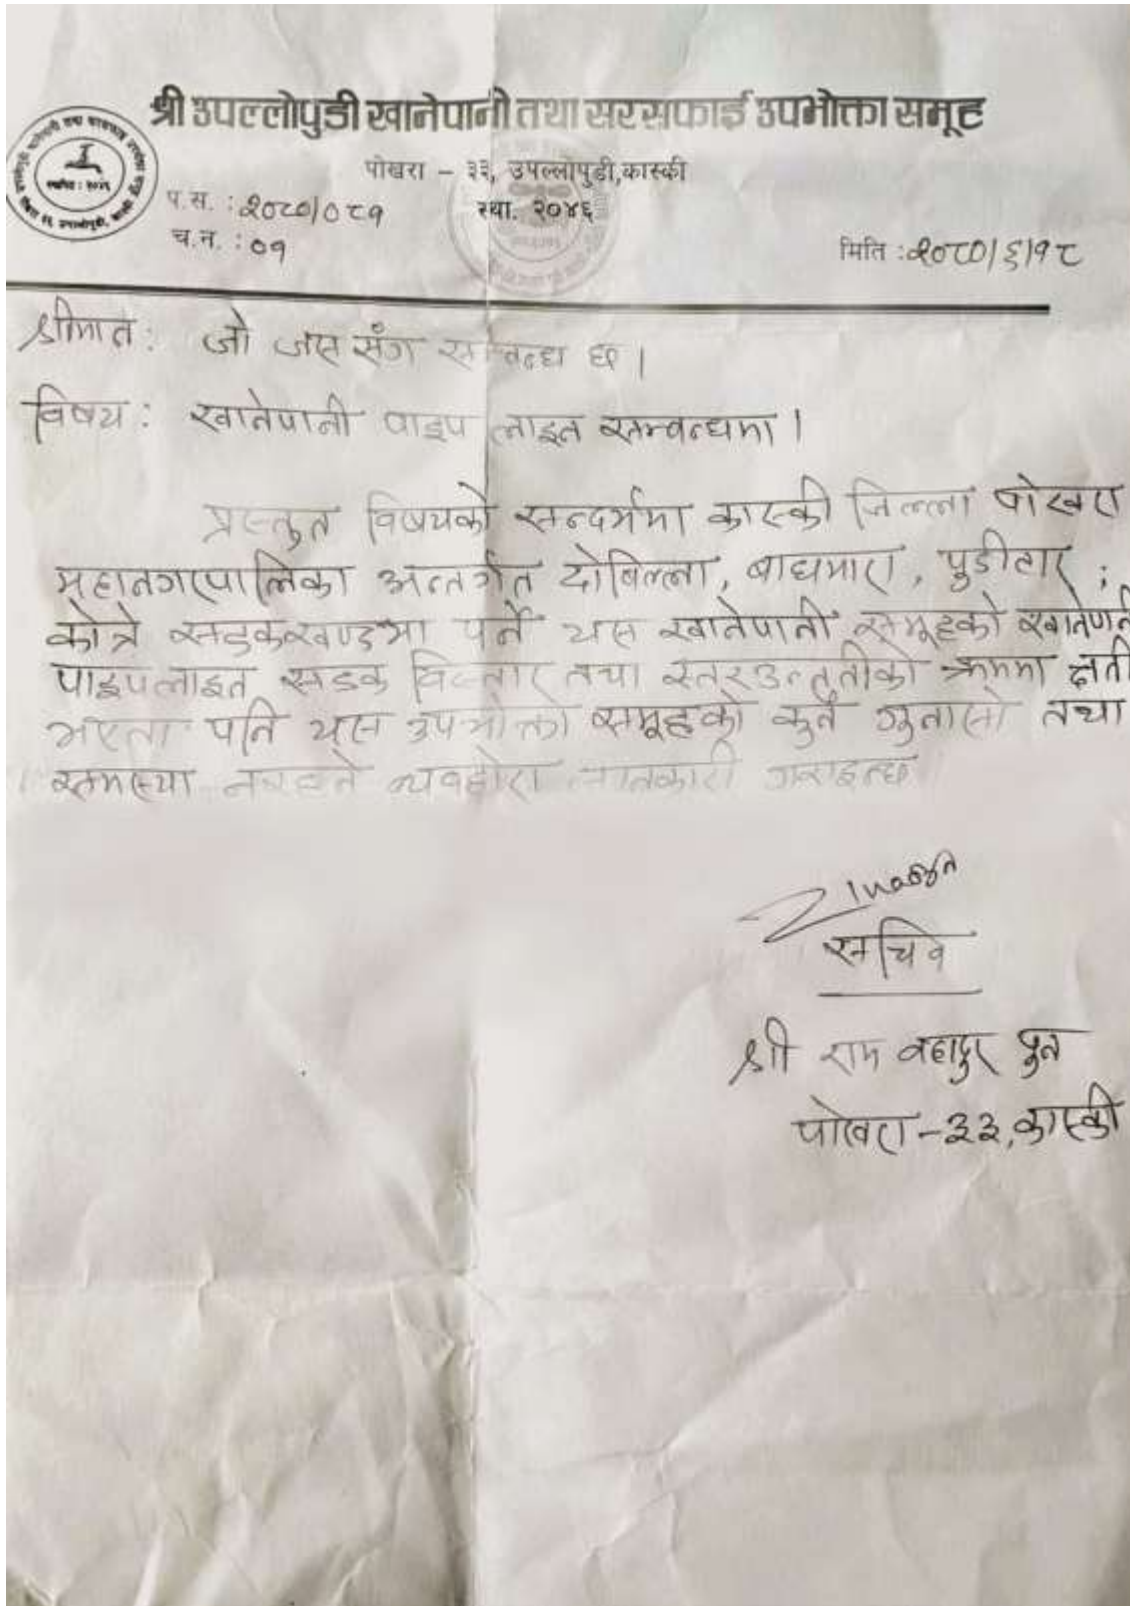 श्री उपल्लोपुडी खानेपानी तथा सरसफाई उपभोक्ता समूह
पोखरा - ३३, उपल्लोपुडी,कास्की
स्था. २०४६
प.स. : २०८०/०८१
च.न. : ०१
मिति : २०८०/६/१८
श्रीमान: जो जस सँग सम्बन्ध छ।
विषय: खानेपानी पाइप लाइन सम्बन्धमा।
प्रस्तुत विषयको सन्दर्भमा कास्की जिल्ला पोखरा
महानगरपालिका अन्तर्गत दोबिल्ला, बाघमारा, पुडीटार ;
कोत्रे सडकखण्डमा पर्ने यस खानेपानी समूहको खानेपानी
पाइपलाइन सडक विस्तार तथा स्तरउन्नतीको क्रममा क्षती
भएता पनि यस उपभोक्ता समूहको कुनै गुनासो तथा
समस्या नरहने व्यवहोरा जानकारी गराइन्छ
सचिव
श्री राम बहादुर पुन
पोखरा -३३,कास्की